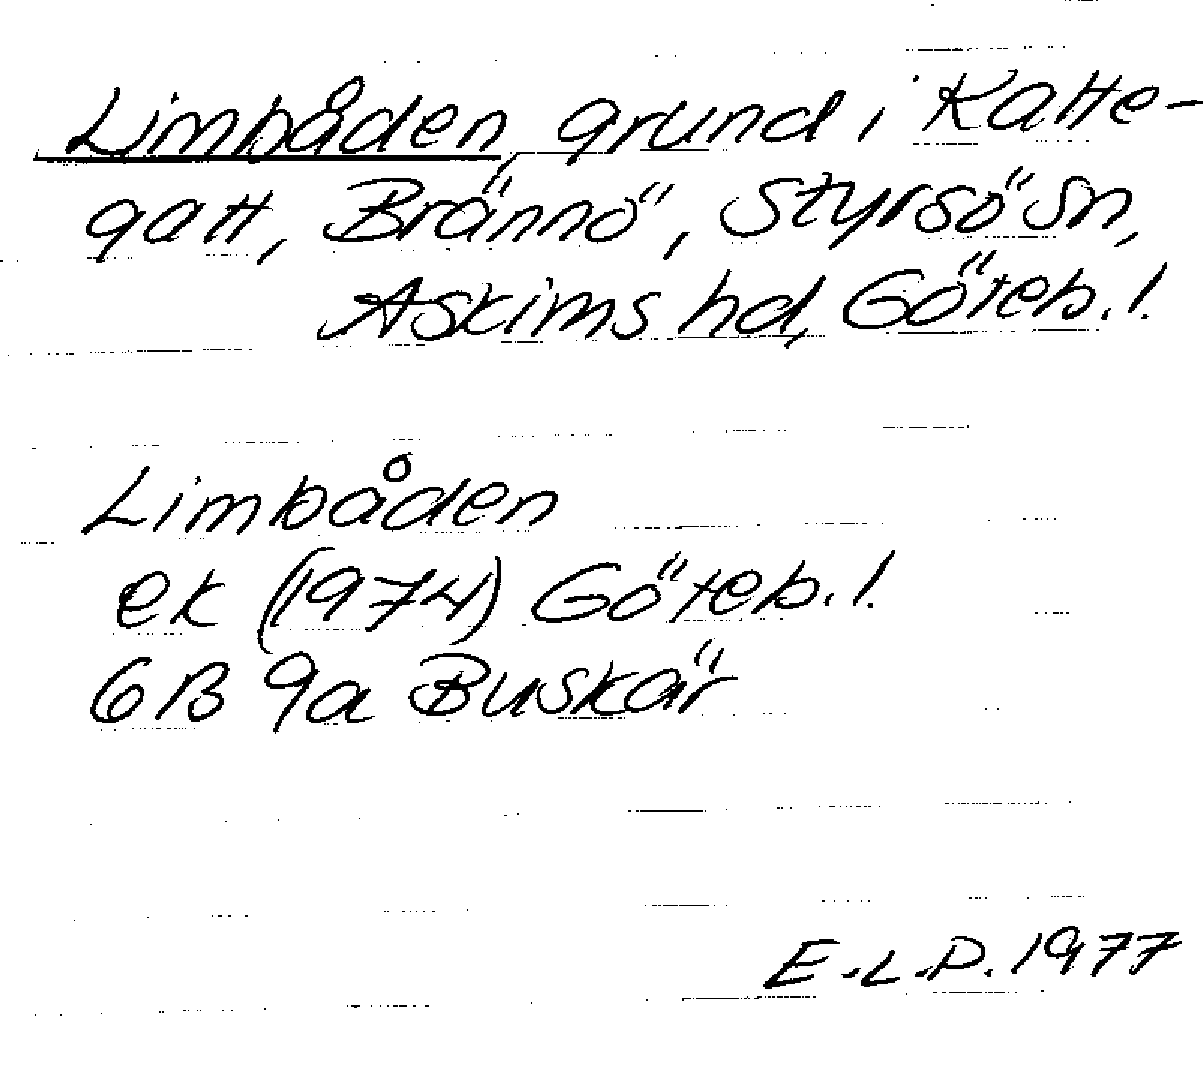 Limbåden, grund i Katte-
gatt, Brännö, Styrsö sn,
Askims hd, Göteb. l.
Limbåden
ek (1974) Göteb. l.
6B 9a Buskär
E.L.P. 1977